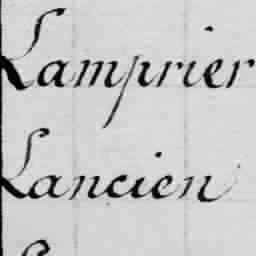 Lamprier
Lancien